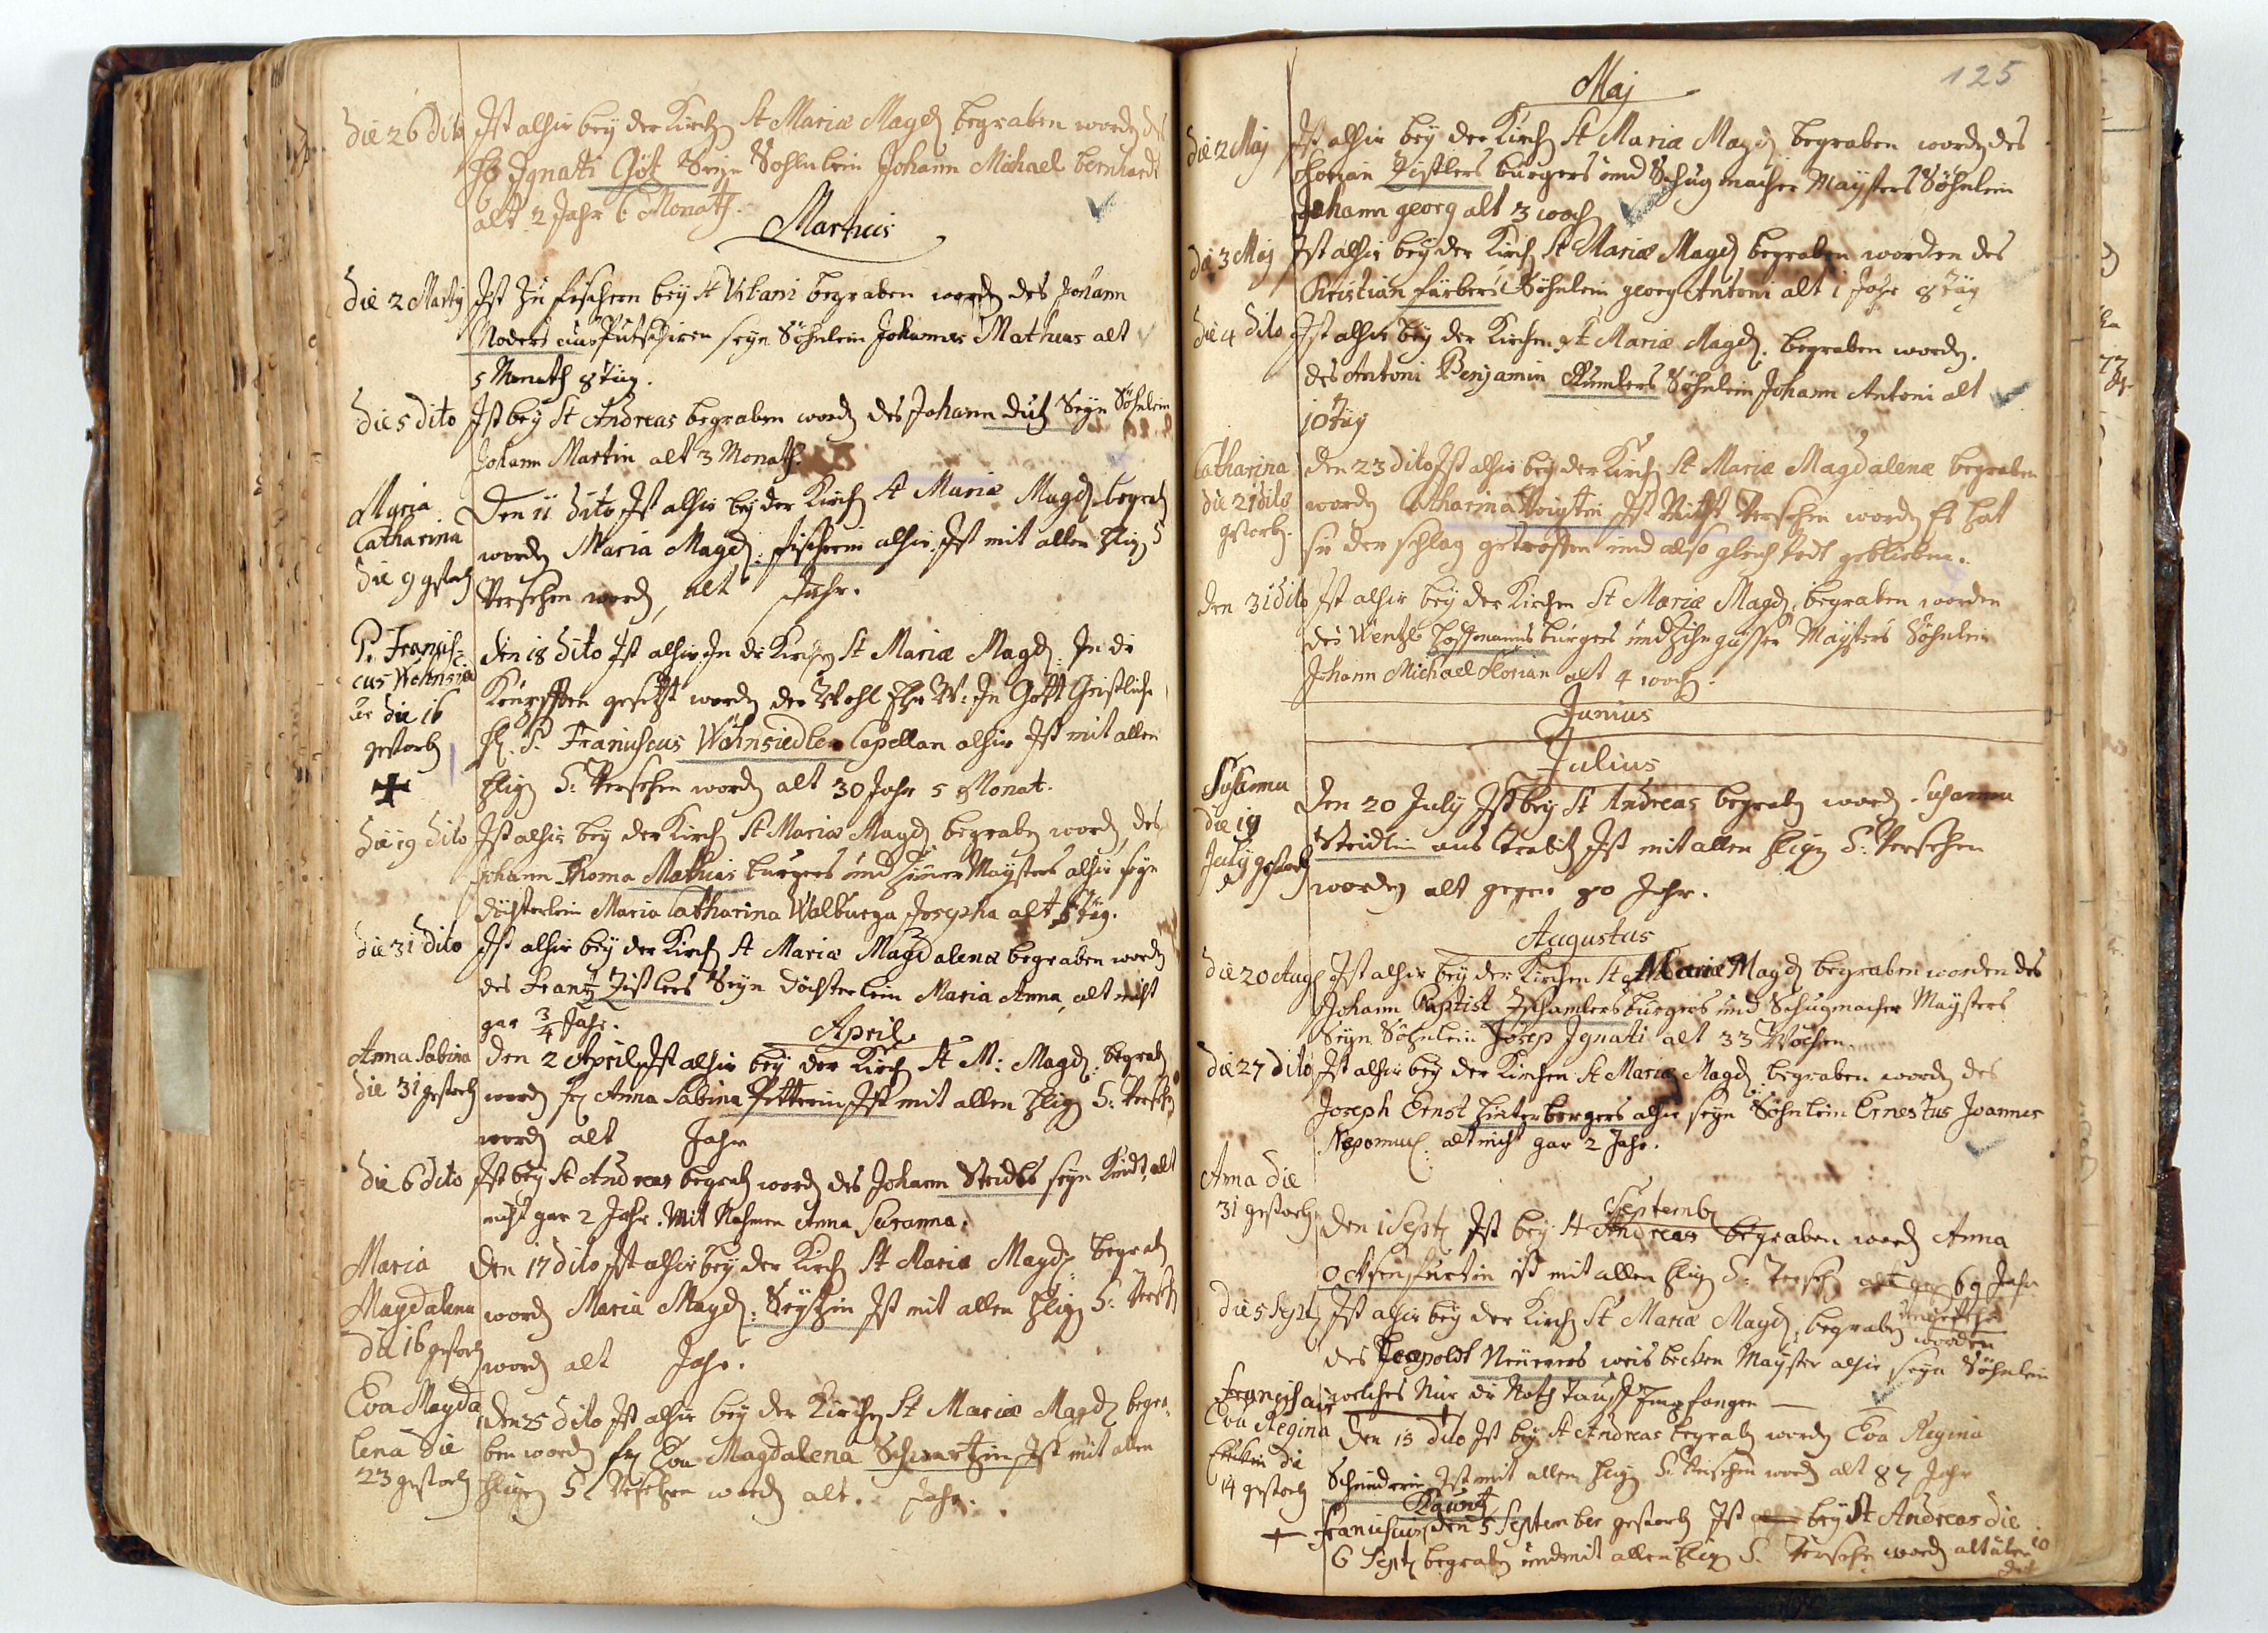 die 26 dito Ist alhir bey der Kirch St Mariæ Magd begraben worden des
H Ignati Seyn Sohnlein Johann Michael bernhard
alt 2 Jahr 6 Monath.
Martius
die 2 Marty Ist zu fischern bey St Urbani begraben word des Johann
Moders aus Putschiren seyn Söhnlein Johannes Matheus alt
5 Monath 8 täg.
die 5 dito Ist bey St Andreas begraben word des Johann dutz Seyn Söhnlein
Johann Martin alt 3 Monath.
Maria
Catharina
die 9 gestorb
Den 11 dito Ist alhir bey der Kirch St Mariæ Magd begrab
worden Maria Magd: fischerin alhir. Ist mit allen Hlig S
Versehen word, alt Jahr.
P. Francis=
cus Wohnsied
ler die 16
gestorb
den 18 dito Ist alhir In der Kirchen St Mariæ Magd: In die
Krufften gesetzt worden der Wohl Ehr W: In Gott Geistliche
H. P. Franciscus Wohnsiedler Capellan alhir Ist mit allen
Hlig S: Versehen worden alt 30 Jahr 5 Monat.
die 19 dito Ist alhir bey der Kirch St Mariæ Magd begraben word, des
Johann Thoma Mathias burgers und Maysters alhir seyn
döchterlein Maria Catharina Walburga Josepha alt 8 täg.
die 31 dito Ist alhir bey der Kirch St Mariæ Magdalenæ begraben word
des Frantz Zistlers Seyn döchterlein Maria Anna, alt nicht
gar 3/4 Jahr.
April
Anna Sabina
die 31 gestorb
den 2 April Ist alhir bey der Kirch St M: Magd: begrab
word fr Anna Sabina Ritterin Ist mit allen Hlig S: Verseh
word alt Jahr
die 6 dito Ist bey St Andreas begrab word des Johann Steidls seyn Kindt, alt
nicht gar 2 Jahr. Mit Nahmen Anna Susanna.
Maria
Magdalena
die 16 gestorb
Den 17 dito Ist alhir bey der Kirch St Mariæ Magd: begrab
word Maria Magd: Ist mit allen Hlig S: Verseh
word alt Jahr.
Eva Magda
lena die
23 gestorb
den 25 dito Ist alhir bey der Kirchen St Mariæ Magd begra=
ben word fr Eva Magdalena Schwartzin Ist mit allen
Hligen S Versehen word alt. Jahr.
125
Maj
die 2 Maj Ist alhir bey der Kirch St Mariæ Magd begraben worden des
florian Zistlers burgers und Schugmacher Maysters Söhnlein
Johann georg alt 3 woch
die 3 Maj Ist alhir bey der Kirch St Mariæ Magd begraben worden des
Christian färbers Söhnlein georg Antoni alt 1 Jahr 8 täg
die 4 dito Ist alhir bey der Kirchen St Mariæ Magd. begraben worden.
des Antoni Benjamin Rumlers Söhnlein Johann Antoni alt
10 täg
Catharina
die 21 dito
gestorb.
den 23 dito Ist alhir bey der Kirch St Mariæ Magdalenæ begraben
worden Catharina Voigtin Ist Nicht Versehen worden Es hat
sie der schlag getroffen und also gleich todt geblieben.
den 31 dito Ist alhir bey der Kirchen St Mariæ Magd: begraben worden
des Wentzl Hoffmanns burgers und Zihngiesser Maysters Söhnlein
Johann Michael Florian alt 4 woch.
Junius
Julius
Susanna
die 19
July gestorb
den 20 July Ist bey St Andreas begrab word. Susanna
Steidlin aus Ist mit allen Hlig S: Versehen
worden alt gegen 80 Jahr.
Augustus
die 20 Aug Ist alhir bey der Kirchen St Mariæ Magd begraben worden des
Johann Baptist Tschamlers burgers und Schugmacher Maysters
Seyn Söhnlein Josep Ignati alt 33 Wochen.
die 27 dito Ist alhir bey der Kirchen St Mariæ Magd. begraben worden des
Joseph Ernst Hinterbergers alhir seyn Söhnlein Ernestus Joannes
Nepomuc: alt nicht gar 2 Jahr.
Anna die
31 gestorb
Septemb
den 1 Sept Ist bey St Andreas begraben word Anna
Ochsenfurtin ist mit allen Hlig S: Verseh alt geg 69 Jahr
die 5 Sept Ist alhir bey der Kirch St Mariæ Magd, begraben worden
des Leopoldt weis becken Mayster alhir seyn Söhnlein
welches Nur die Noth tauff Empfangen
Eva Regina
die
14 gestorb
Den 15 dito Ist bey St Andreas begrab worden Eva Regina
Schneiderin Ist mit allen Hlig S. Versehen word alt 87 Jahr
Franciscus den 5 September gestorb Ist bey St Andreas die
6 Sept begrab und mit allen Hlig S. Versehe word alt über 10